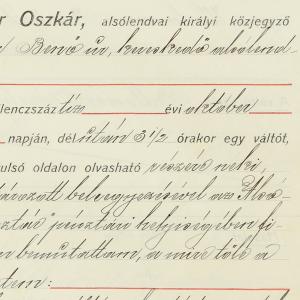 r Oszkár, alsólendvai királyi közjegyző
Benő úr, kereskedő alsólend-
lenczszáz tíz évi október
napján, dél után 3 1/2 órakor egy váltót,
ulsó oldalon olvasható részére neki,
határozott beleegyezésével az Alsó-
pénztári helyiségében fi-
bemutattam, a mire tőle a